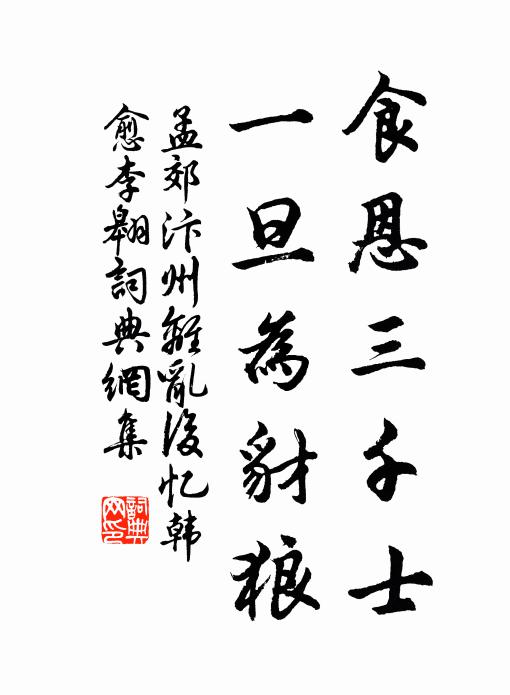 食恩三千士
一旦為豺狼
孟郊汴州離亂後忆韩
愈李翱詞典網集
詞典
网印